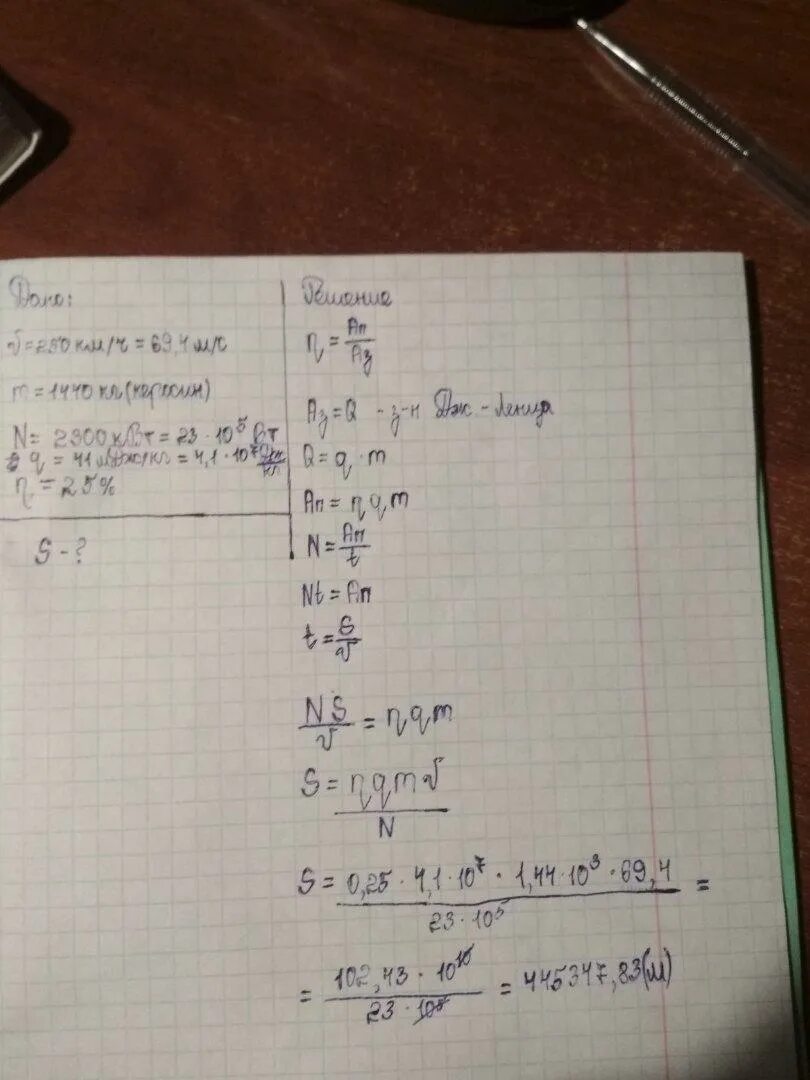 Дано:
v = 250 км/ч = 69,4 м/с
m = 1440 кг (керосин)
N = 2300 кВт = 23 · 10⁵ Вт
q = 41 мДж/кг = 4,1 · 10⁷ Дж/кг
η = 25%
S - ?
Решение
η = Aп/Aз
Aз = Q - з-н Дж - Ленца
Q = q · m
Aп = ηqm
N = Aп/t
Nt = Aп
t = S/v
NS/v = ηqm
S = ηqmv/N
S = 0,25 · 4,1 · 10⁷ · 1,44 · 10³ · 69,4 / 23 · 10⁵ =
= 102,43 · 10¹⁰ / 23 · 10⁵ = 445347,83 (м)